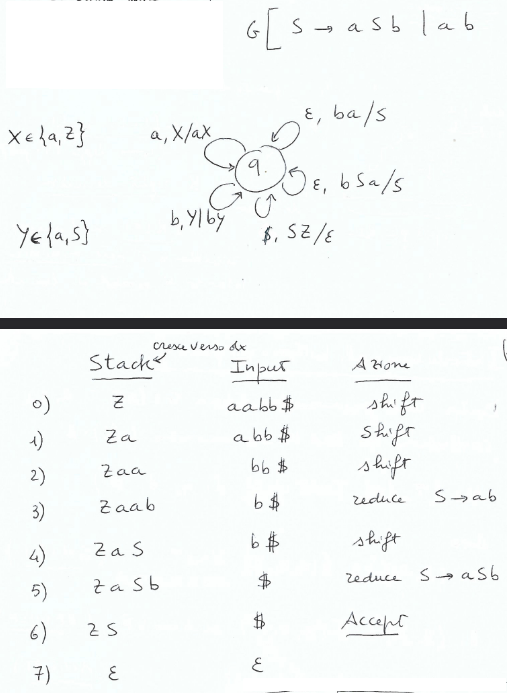 G[ S → a S b | a b
X ∈ {a, Z}
a, X/aX
ε, ba/S
q.
ε, b S a/S
b, Y/bY
$, SZ/ε
Y ∈ {a, S}
cresce verso dx
Stack Input Azione
0) Z aabb$ shift
1) Za abb$ Shift
2) Zaa bb$ shift
3) Zaab b$ reduce S → ab
4) ZaS b$ shift
5) ZaSb $ reduce S → aSb
6) ZS $ Accept
7) ε ε